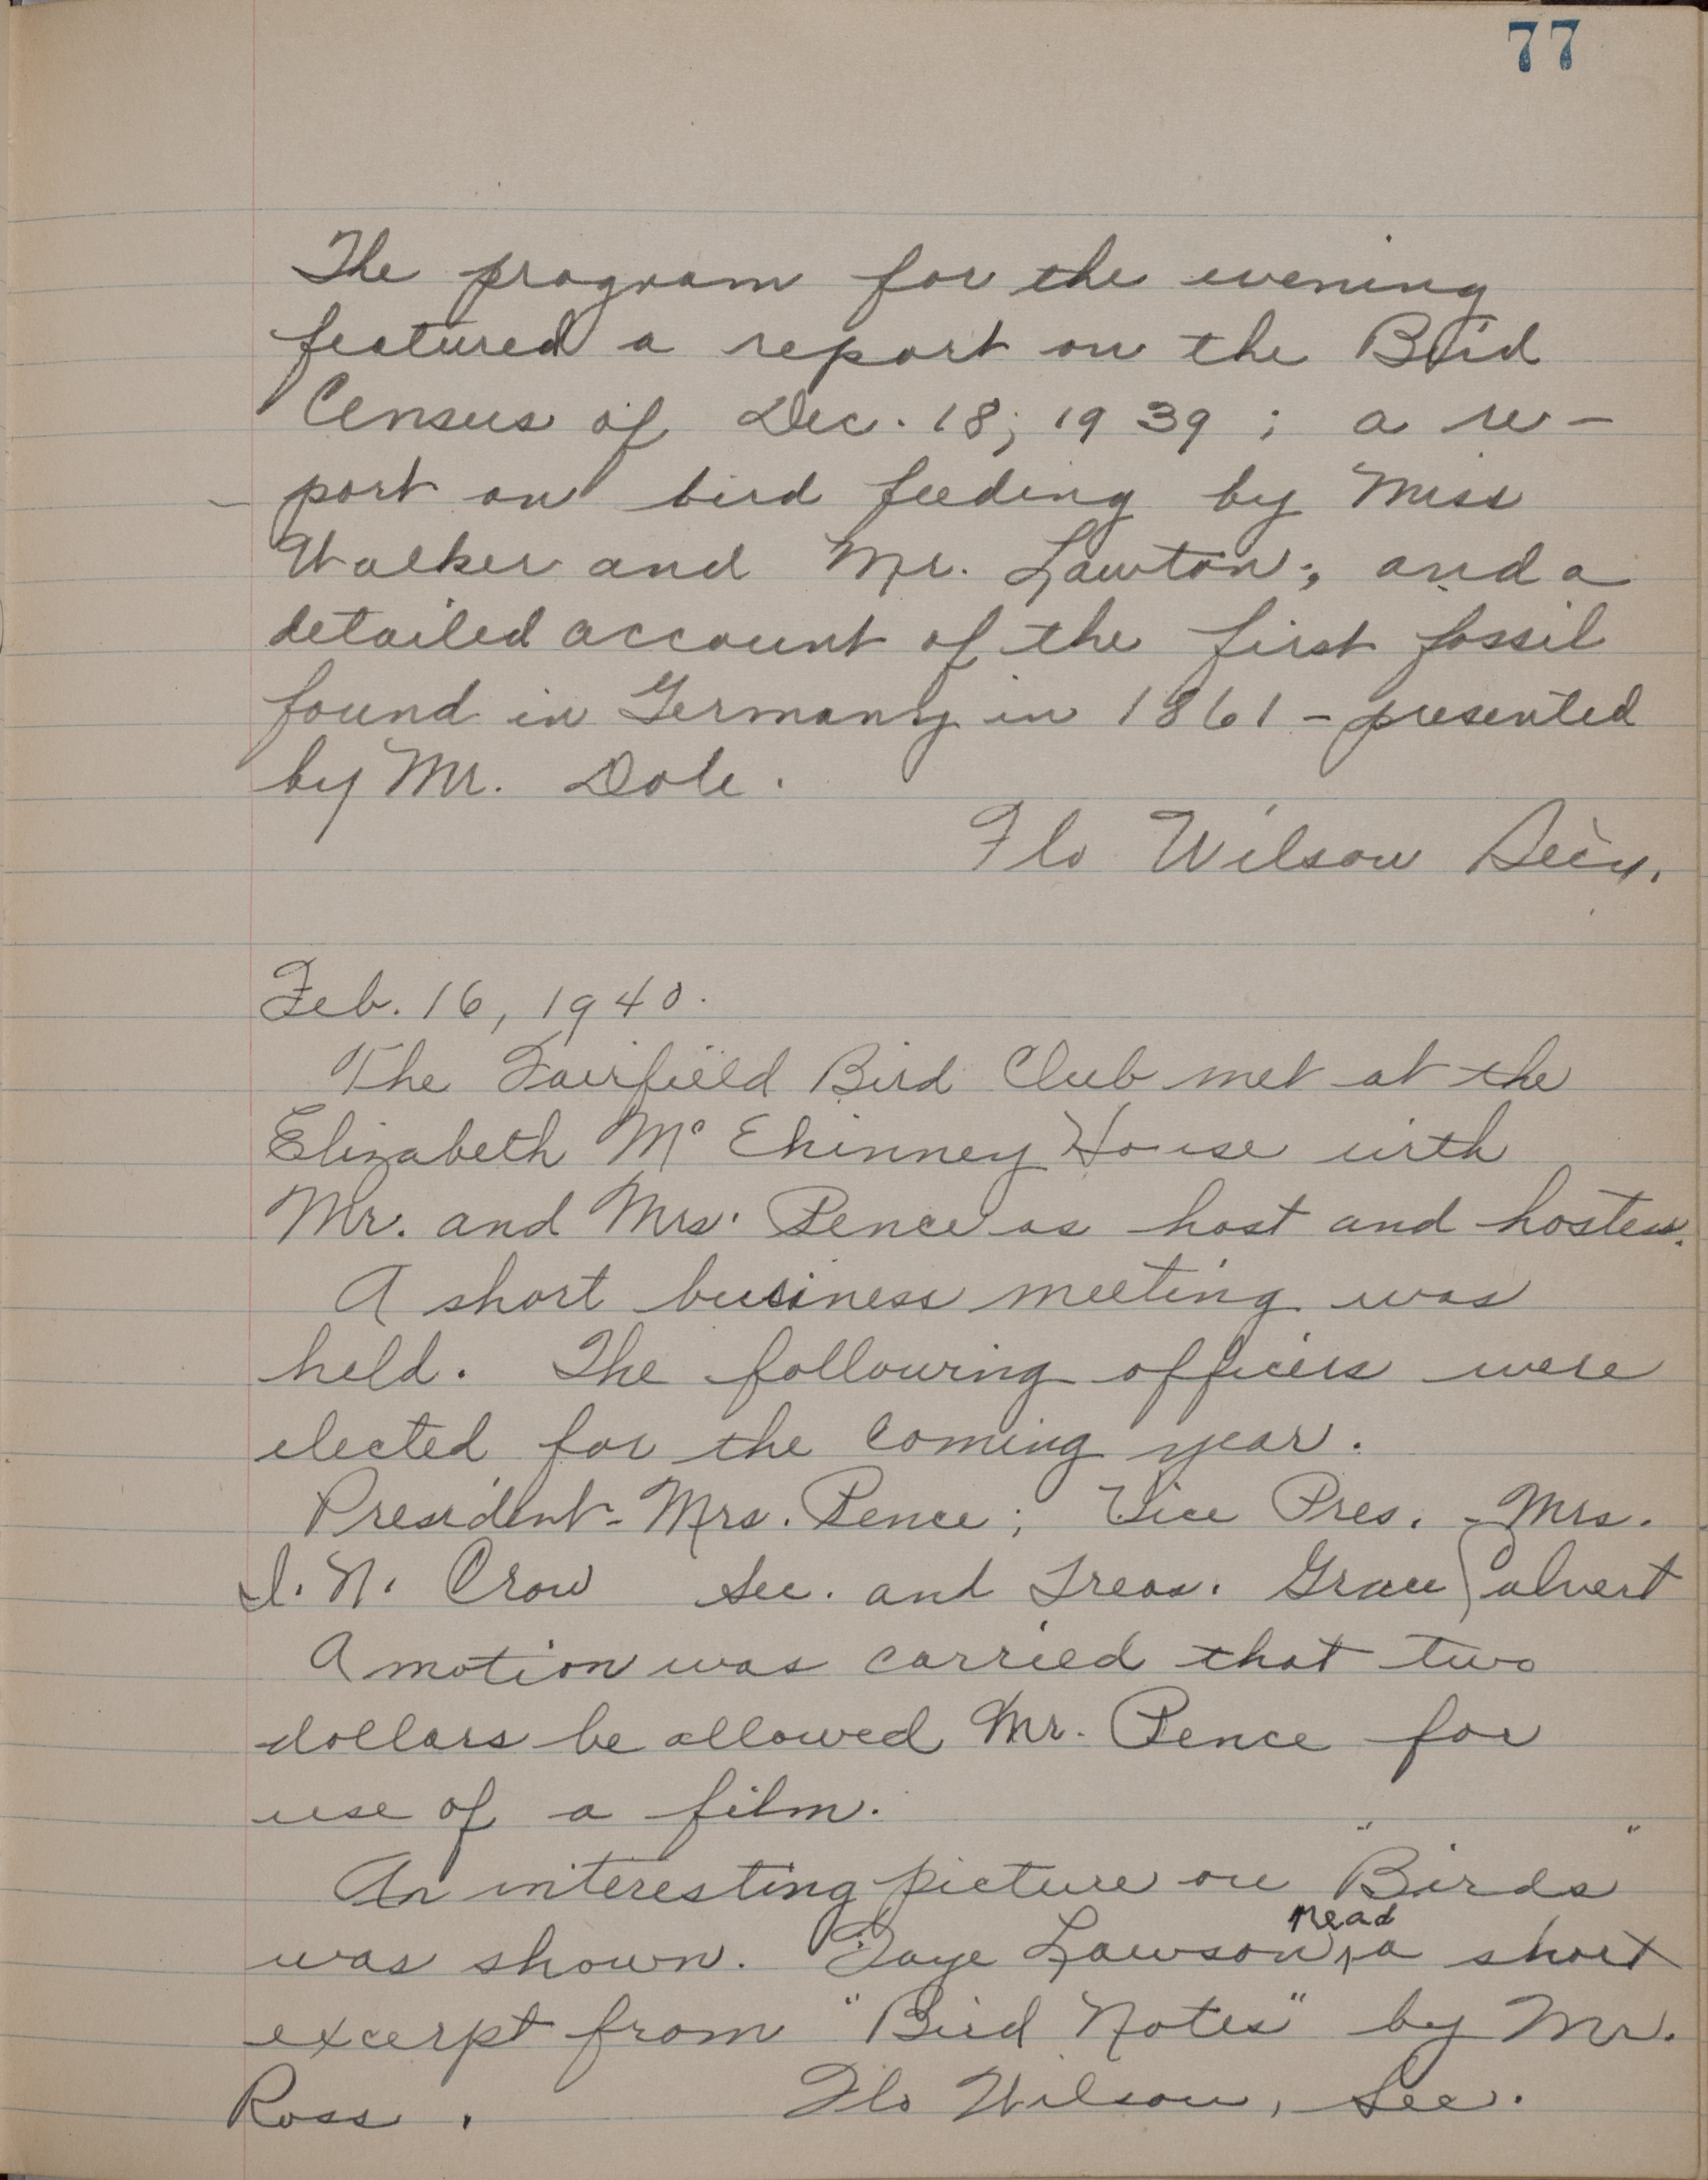 77
The program for the evening
featured a report on the Bird
Census of Dec. 18, 1939; a re-
- port on bird feeding by Miss
Walker and Mr. Lawton; and a
detailed account of the first fossil
found in Germany in 1861 - presented
by Mr. Dole.
Flo Wilson Sec'y.
Feb. 16, 1940.
The Fairfield Bird Club met at the
Elizabeth Mc Ehinney House with
Mr. and Mrs. Pence as host and hostess.
A short business meeting was
held. The following officers were
elected for the coming year.
President - Mrs. Pence; Vice Pres. - Mrs.
I. N. Crow Sec. and Treas. Grace Calvert
A motion was carried that two
dollars be allowed Mr. Pence for
use of a film.
An interesting picture on "Birds"
was shown. Faye Lawson read a short
excerpt from "Bird Notes" by Mr.
Ross. Flo Wilson, Sec.